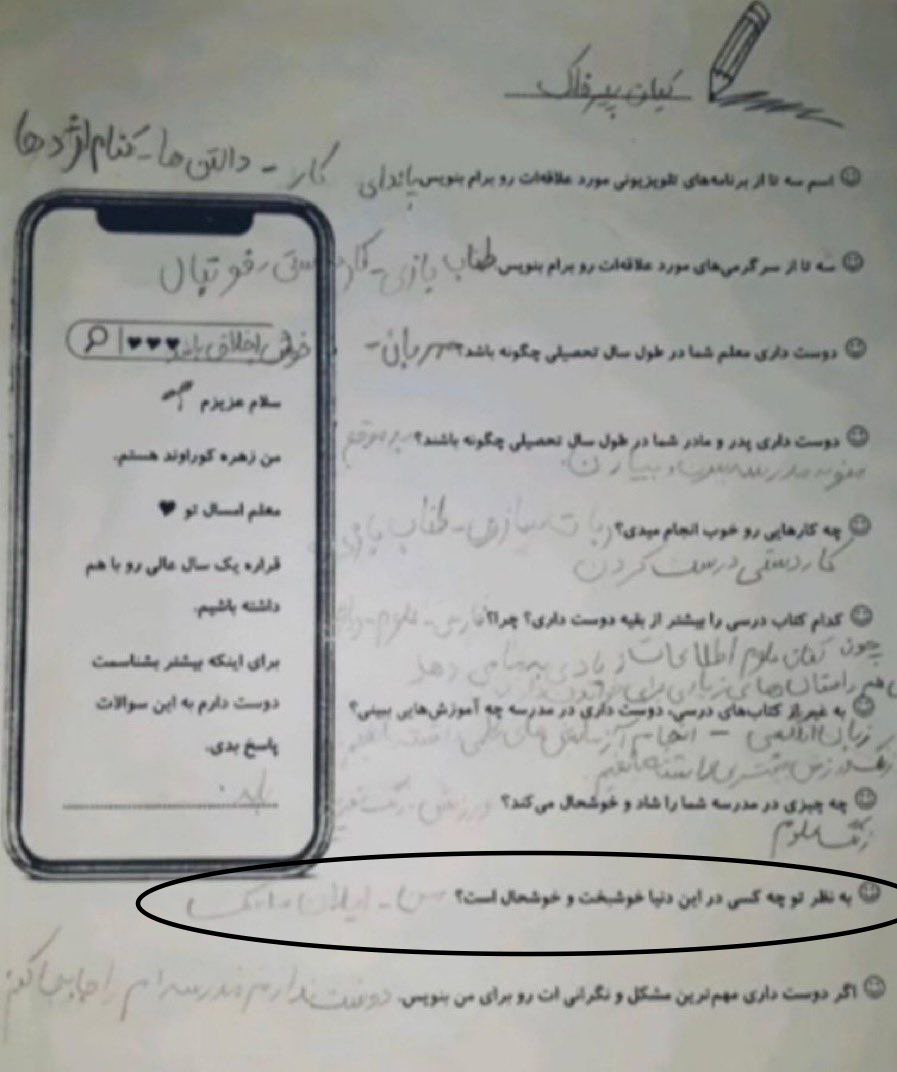 کیان پیرفلک
اسم سه تا از برنامه‌های تلویزیونی مورد علاقه‌ات رو برام بنویس پاندای کار - دالتن ها - کنام اژدها
سه تا از سرگرمی‌های مورد علاقه‌ات رو برام بنویس طناب بازی - کاردستی - فوتبال
دوست داری معلم شما در طول سال تحصیلی چگونه باشد؟ مهربان - خوش اخلاق باشد
دوست داری پدر و مادر شما در طول سال تحصیلی چگونه باشند؟ به موقع
منو به مدرسه ببرند و بیارن.
چه کارهایی رو خوب انجام میدی؟ ربات سازی - طناب بازی -
کاردستی درست کردن
کدام کتاب درسی را بیشتر از بقیه دوست داری؟ چرا؟ فارسی - علوم -
چون کتاب علوم اطلاعات زیادی به ما می دهد
هم داستان های زیادی برای
به غیر از کتاب‌های درسی، دوست داری در مدرسه چه آموزش‌هایی ببینی؟
زبان انگلیسی - انجام آزمایش های علمی
زنگ ورزش بیشتری داشته باشیم
چه چیزی در مدرسه شما را شاد و خوشحال می‌کند؟ ورزش - زنگ
زنگ علوم
به نظر تو چه کسی در این دنیا خوشبخت و خوشحال است؟ من - ایلان ماسک
اگر دوست داری مهم‌ترین مشکل و نگرانی ات رو برای من بنویس. دوست ندارم مدرسه ام را جابجا کنم
♥♥♥
سلام عزیزم
من زهره کوراوند هستم.
معلم امسال تو ♥
قراره یک سال عالی رو با هم
داشته باشیم.
برای اینکه بیشتر بشناسمت
دوست دارم به این سوالات
پاسخ بدی.